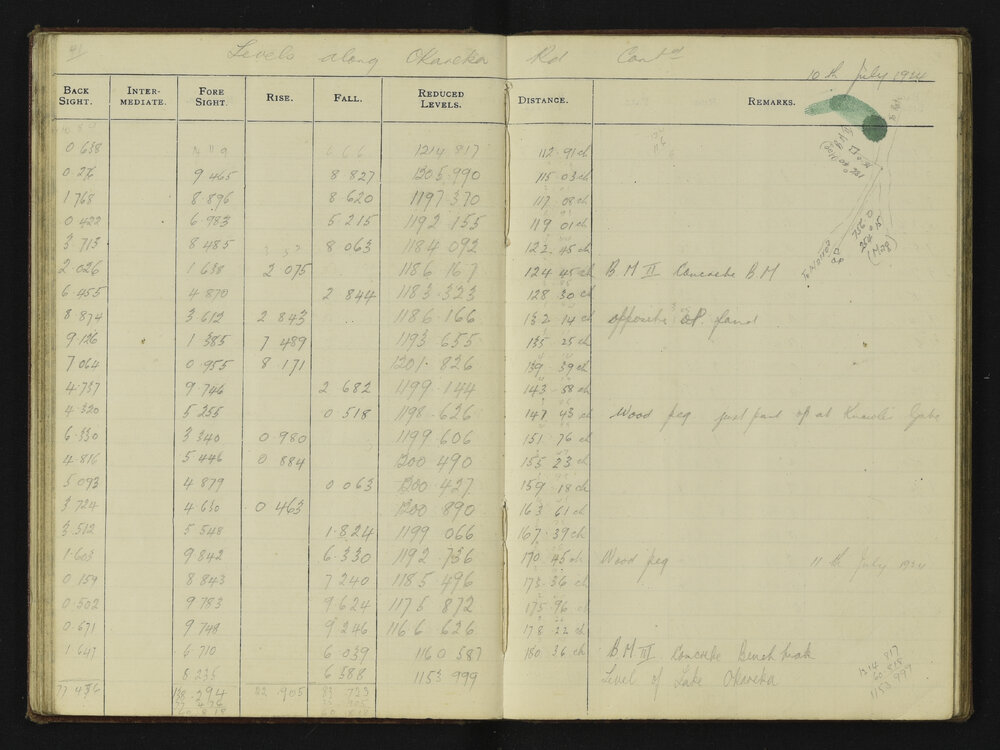 41 Levels along Okareka Rd Contd
10th July 1924
BACK SIGHT. INTER-MEDIATE. FORE SIGHT. RISE. FALL. REDUCED LEVELS. DISTANCE. REMARKS.
0 638 1214 817 112 91 ch
0 276 9 465 8 827 1205 990 115 03 ch
1 768 8 896 8 620 1197 370 117 08 ch
0 422 6 983 5 215 1192 155 119 01 ch
3 713 8 485 8 063 1184 092 122 45 ch
2 026 1 638 2 075 1186 167 124 45 ch B M II Concrete B.M
6 455 4 870 2 844 1183 323 128 30 ch
8 874 3 612 2 843 1186 166 132 14 ch opposite
9 126 1 385 7 489 1193 655 135 25 ch
7 064 0 955 8 171 1201 826 139 39 ch
4 737 9 746 2 682 1199 144 143 58 ch
4 320 5 255 0 518 1198 626 147 43 ch Wood peg just
6 330 3 340 0 980 1199 606 151 76 ch
4 816 5 446 0 884 1200 490 155 23 ch
5 093 4 879 0 063 1200 427 159 18 ch
3 724 4 630 0 463 1200 890 163 61 ch
3 512 5 548 1 824 1199 066 167 39 ch
1 603 9 842 6 330 1192 736 170 45 ch Wood peg 11th July 1924
0 159 8 843 7 240 1185 496 173 36 ch
0 502 9 783 9 624 1175 872 175 96 ch
0 671 9 748 9 246 1166 626 178 22 ch
1 647 6 710 6 039 1160 587 180 36 ch B M III Concrete Bench mark
8 235 6 588 1153 999 Level of Lake Okareka
77 476 138 294 22 905 83 723
1214 817
60 818
1153 999